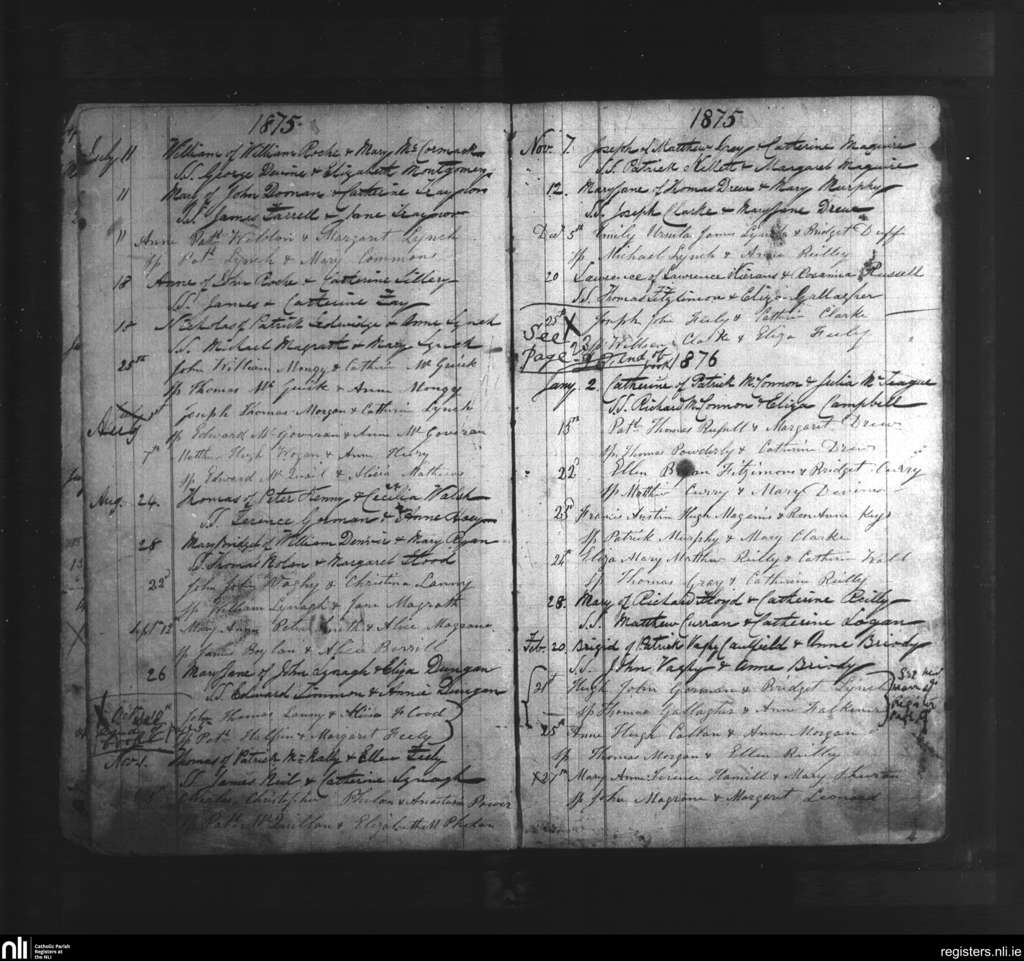 1875
July 11 William of William Roche & Mary McCormack
SS. George Devine & Elizabeth Montgomery
11 Mary of John Doonan & Catherine
SS. James Farrell & Jane
11 Anne Patk Weldon & Margaret Lynch
Sp Patk Lynch & Mary Commons
18 Anne of John Roche & Catherine Tillery
SS. James & Catherine Fay
18 Nicholas of Patrick Ledwidge & Anne Lynch
SS. Michael Magrath & Mary Lynch
25th John William Mongy & Cathrin McGuirk
Sp Thomas McGuirk & Anne Mongy
Aug Joseph Thomas Morgan & Cathrin Lynch
Sp Edward McGovran & Anne McGovran
7th Matthew Hugh Hogan & Anne
Sp Edward McQuail & Alicia Mathews
Aug. 24. Thomas of Peter Kenny & Cecilia Walsh
SS. Terence Gorman & Anne
28 Mary Bridget of William & Mary Ryan
SS Thomas Nolan & Margaret Flood
22d John John & Christina Lanny
Sp William Lynagh & Jane Magrath
Sept 12th Mary Anne Peter Smith & Alice Magrane
Sp James Boylan & Alice
26 Mary Jane of John Lynagh & Eliza Dungan
SS Edward Timmon & Annie Dungan
Octr John Thomas Lanny & Alicia Flood
Sp Patk Halfpin & Margaret Feely
Nov. 1. Thomas of Patrick McNally & Ellen Feely
SS James Neil & Catherine Lynagh
Charles Christopher Phelan & Anastasia Power
Sp Patk McQuillan & Elizabeth M Phelan
1875
Nov. 7. Joseph of Matthew Gray & Catherine Maguire
SS. Patrick Kellett & Margaret Maguire
12. Mary Jane of Thomas Drew & Mary Murphy
SS. Joseph Clarke & Mary Jane Drew
Decr 5th Emily Ursula James Lynch & Bridget Duff
Sp. Michael Lynch & Annie Reilly
20 Lawrence of Lawrence Kierans & Rosanna Russell
SS. Thomas Fitzsimon & Eliza Gallagher
25th X Joseph John Feely & Cathrin Clarke
Sp William Clarke & Eliza Feely
See Page 23 End of book
1876
Jany. 2. Catherine of Patrick McConnon & Julia McTeague
SS. Richard McConnon & Eliza Campbell
13th Patk Thomas Russell & Margaret Drew
Sp. Thomas Powderly & Cathrin Drew
22d Ellen Bryan Fitzimons & Bridget Curry
Sp Matthew Curry & Mary
23d Francis Austin Hugh Magenis & Rose Anne Keys
Sp Patrick Murphy & Mary Clarke
24th Eliza Mary Matthew Reilly & Cathrin Wall
Sp Thomas Gray & Cathrin Reilly
28. Mary of Richard Floyd & Catherine Reilly
SS. Matthew Curran & Catherine Logan
Feb. 20. Brigid of Patrick Caulfield & Anne Briody
SS. John & Anne Briody
21st Hugh John Gorman & Bridget Lynch
Sp Thomas Gallagher & Anne
See new register page 9
25th Anne Hugh Callan & Anne Morgan
Sp Thomas Morgan & Ellen Reilly
X 27th Mary Anne Terence Hamill & Mary
Sp John Magrane & Margaret Leonard
nli Catholic Parish Registers at the NLI
registers.nli.ie